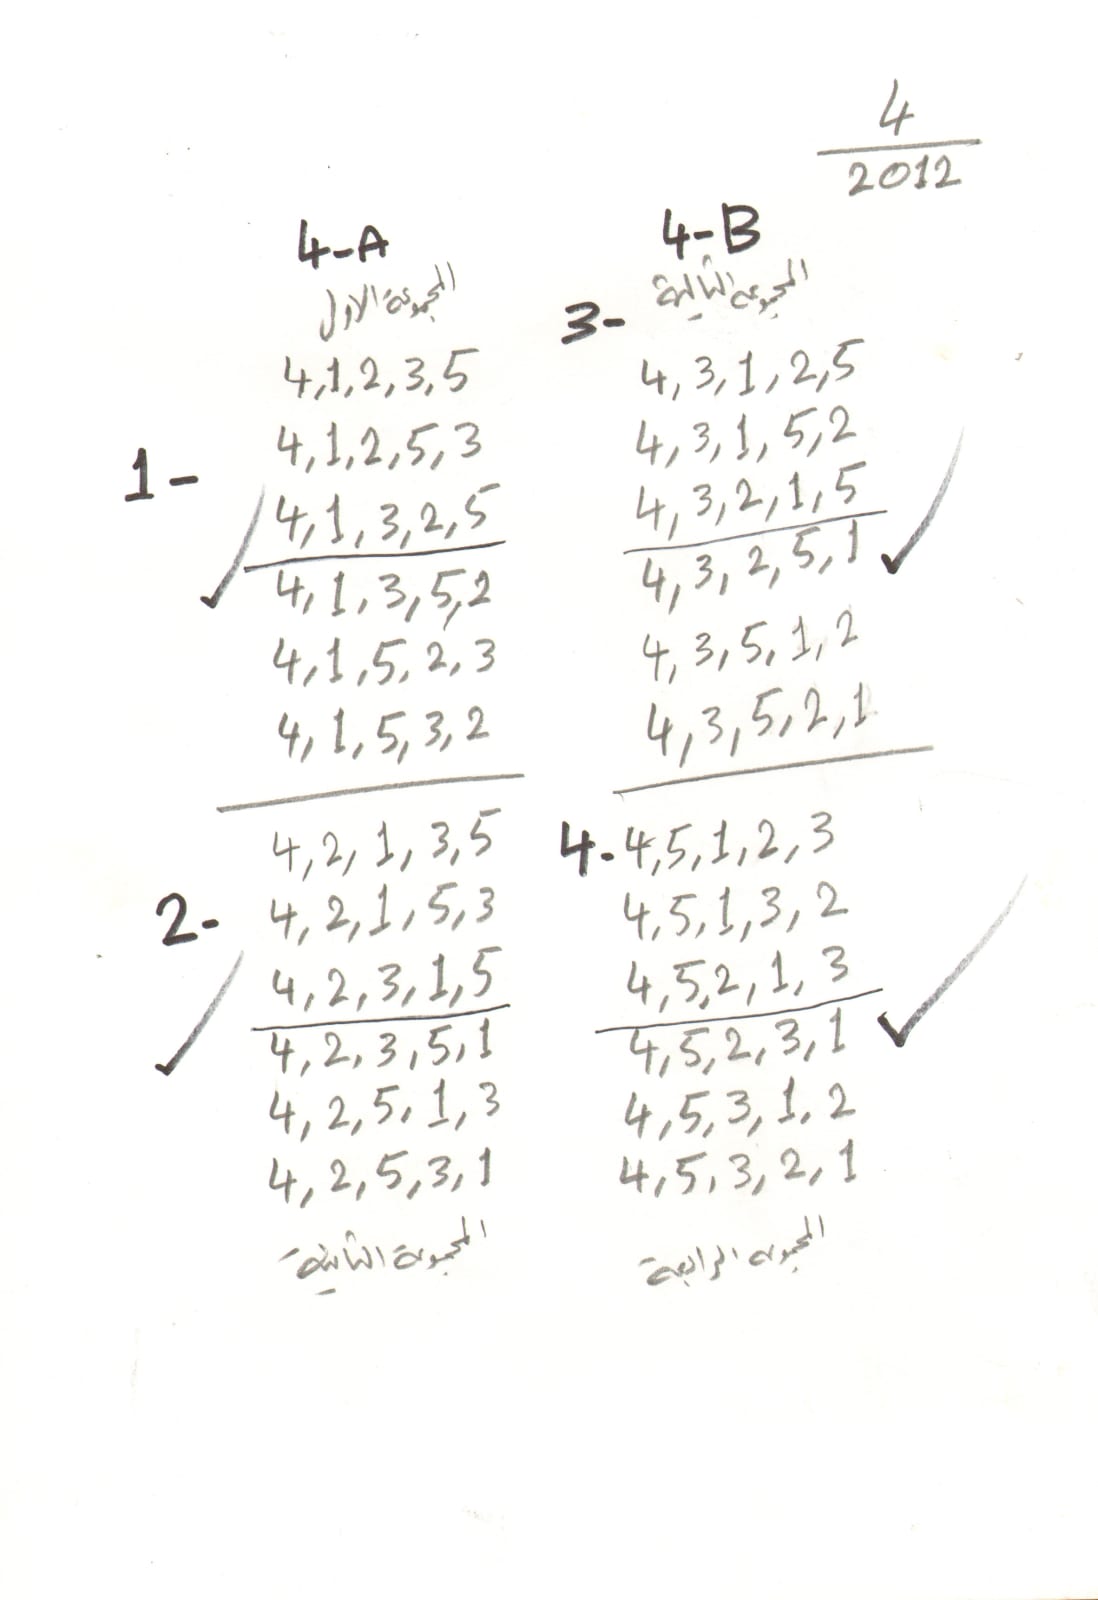 4
2012
4-A
المجموعة الاولى
1-
4,1,2,3,5
4,1,2,5,3
4,1,3,2,5
4,1,3,5,2
4,1,5,2,3
4,1,5,3,2
2-
4,2,1,3,5
4,2,1,5,3
4,2,3,1,5
4,2,3,5,1
4,2,5,1,3
4,2,5,3,1
المجموعة الثانية
4-B
المجموعة الثالثة
3-
4,3,1,2,5
4,3,1,5,2
4,3,2,1,5
4,3,2,5,1
4,3,5,1,2
4,3,5,2,1
4-
4,5,1,2,3
4,5,1,3,2
4,5,2,1,3
4,5,2,3,1
4,5,3,1,2
4,5,3,2,1
المجموعة الرابعة